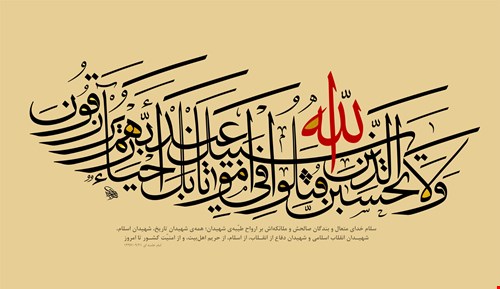 ولا تحسبن الذين قتلوا في سبيل الله أمواتا بل أحياء عند ربهم يرزقون
سلام خدای متعال و بندگان صالحش و ملائکه‌اش بر ارواح طیبه‌ی شهیدان؛ همه‌ی شهیدان تاریخ، شهیدان اسلام،
شهیدان انقلاب اسلامی و شهیدان دفاع از انقلاب، از اسلام، از حریم اهل‌بیت، و از امنیت کشور تا امروز